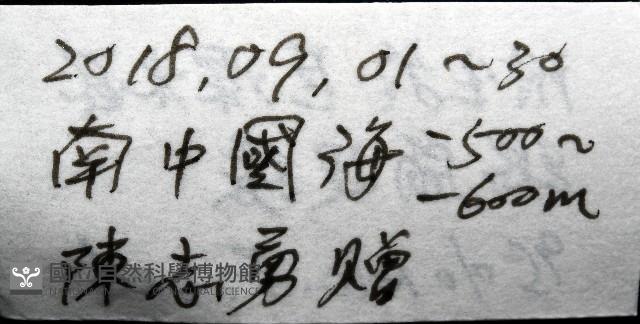 2018.09.01~30
南中國海 -500~
-600m
陳志勇贈
國立自然科學博物館